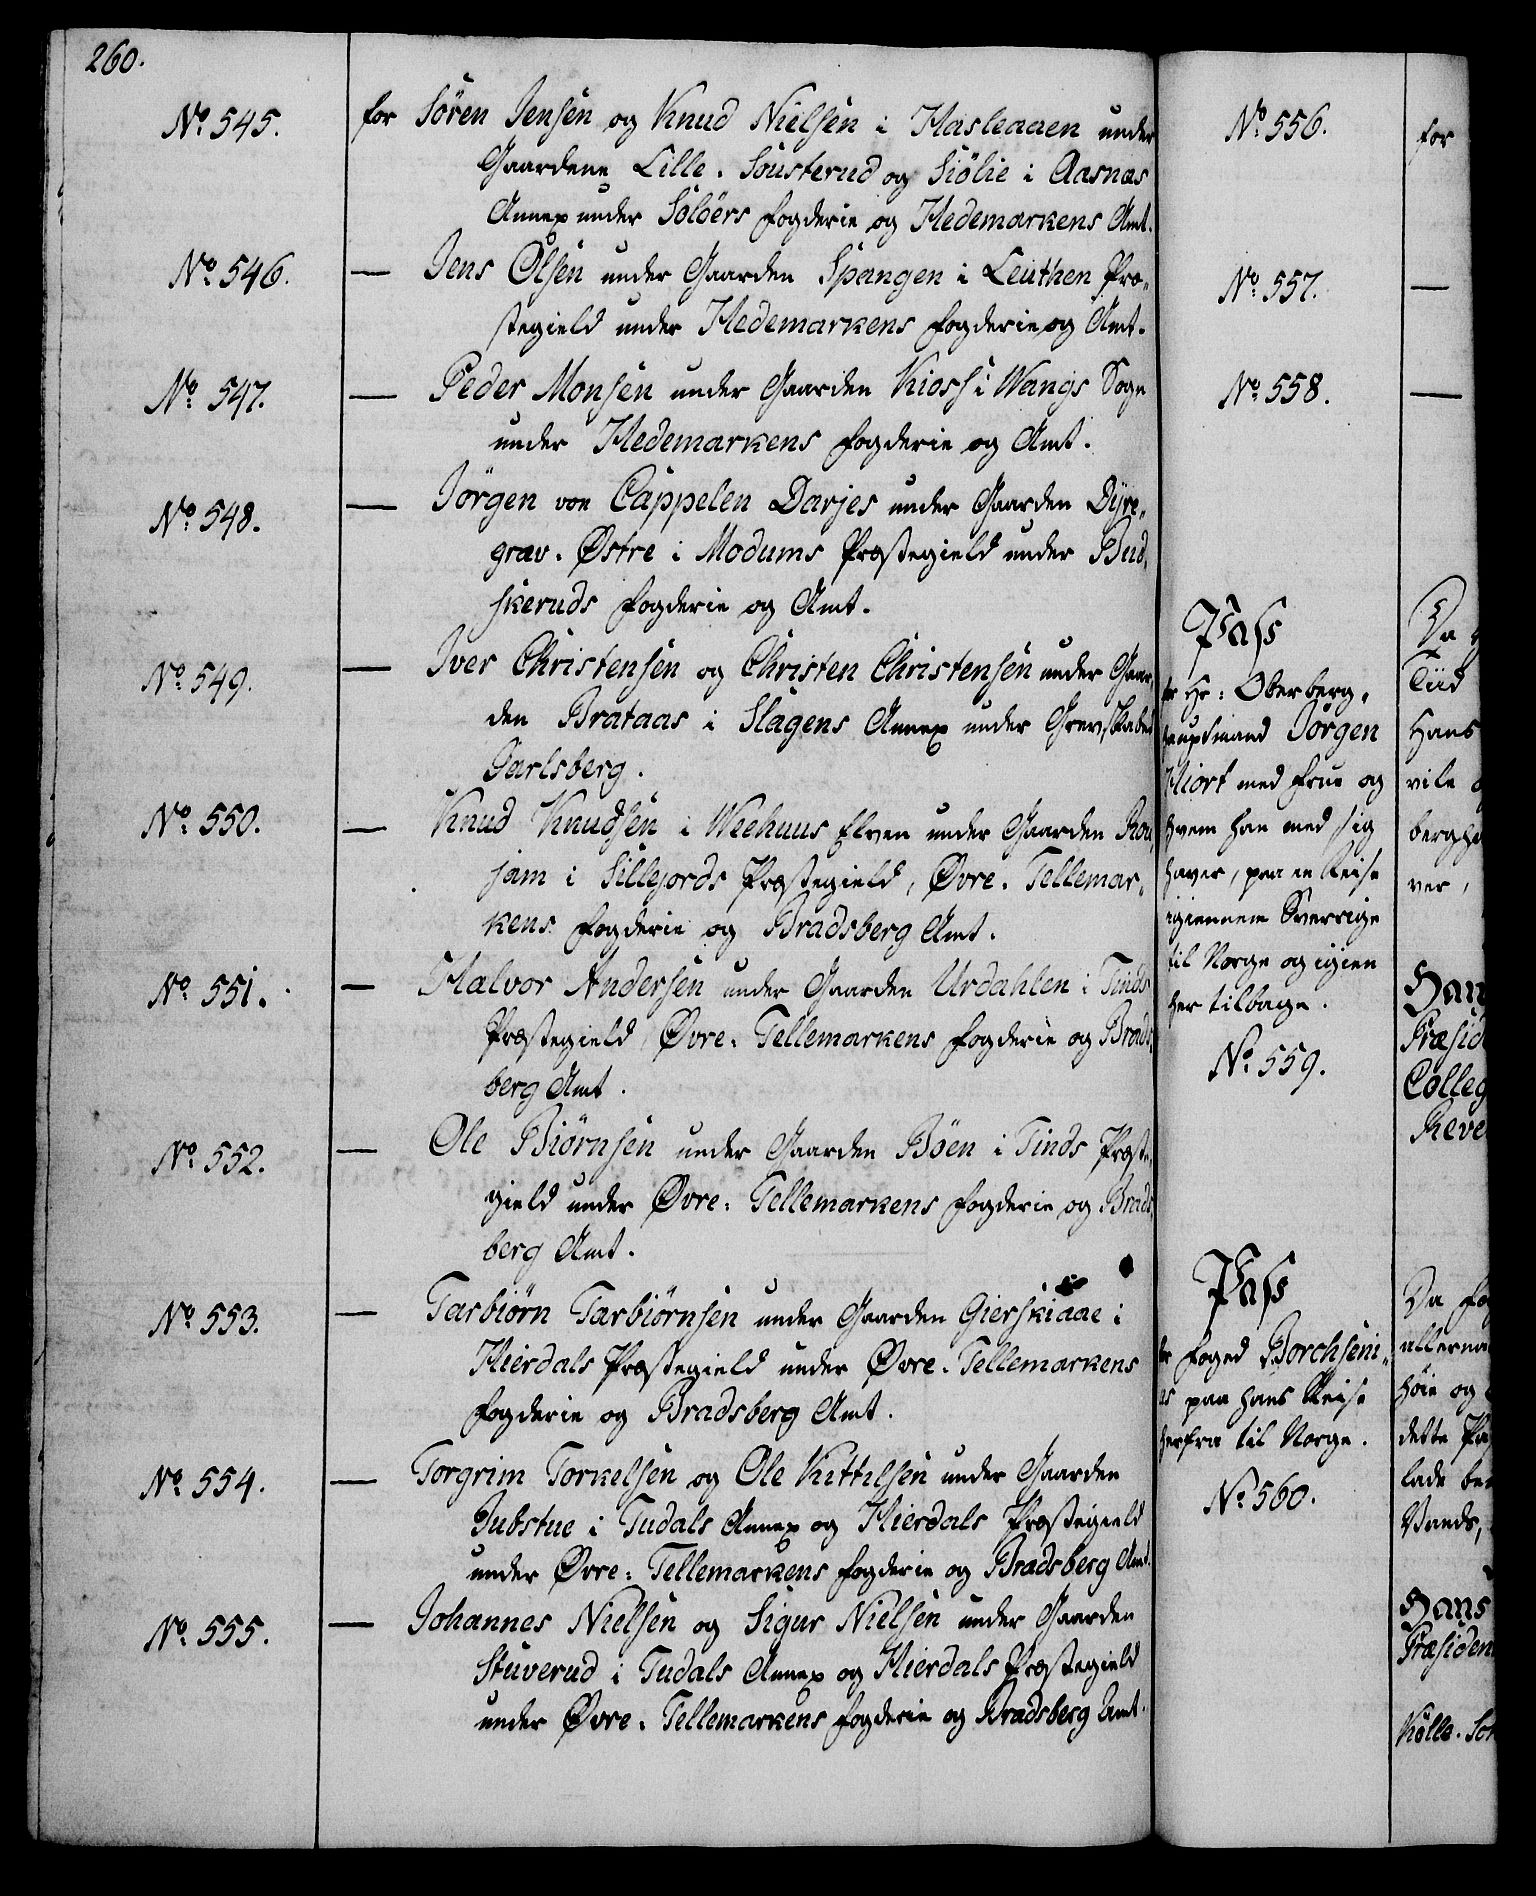 260.
No. 545. for Sören Jensen og Knud Nielsen i Hasleaaen under
Gaardene Lille-Sousterud og Siölie i Aasnæs
Annex under Soløers Fogderie og Hedemarkens Amt.
No. 546. — Jens Olsen under Gaarden Spangen i Leuthen Præ-
stegield under Hedemarkens Fogderie og Amt.
No. 547. — Peder Monsen under Gaarden Kioss i Wangs Sogn
under Hedemarkens Fogderie og Amt.
No. 548. — Jörgen von Cappelen Darjes under Gaarden Dyre-
grav-Østre i Modums Præstegield under Bud-
skeruds Fogderie og Amt.
No. 549. — Iver Christensen og Christen Christensen under Gaar-
den Brataas i Slagens Annex under Grevskabet
Jarlsberg.
No. 550. — Knud Knudsen i Weehuus Elven under Gaarden Rou-
jam i Sillejords Præstegield, Øvre-Tellemar-
kens Fogderie og Bradsberg Amt.
No. 551. — Halvor Andersen under Gaarden Urdahlen i Tinds
Præstegield, Øvre-Tellemarkens Fogderie og Brads-
berg Amt.
No. 552. — Ole Biörnsen under Gaarden Böen i Tinds Præste-
gield under Øvre-Tellemarkens Fogderie og Brads-
berg Amt.
No. 553. — Tarbiörn Tarbiörnsen under Gaarden Gierskiaae i
Hierdals Præstegield under Øvre-Tellemarkens
Fogderie og Bradsberg Amt.
No. 554. — Torgrim Torkelsen og Ole Kittilsen under Gaarden
Jubstue i Tudals Annex og Hierdals Præstegield
under Øvre-Tellemarkens Fogderie og Bradsberg Amt.
No. 555. — Johannes Nielsen og Sigur Nielsen under Gaarden
Stuverud i Tudals Annex og Hierdals Præstegield
under Øvre-Tellemarkens Fogderie og Bradsberg Amt.
No. 556. for
No. 557. —
No. 558. —
Pass
for Hr: Oberberg-
hauptmand Jörgen
Hiort med Frue og
hvem han med sig
haver, paa en Reise
igiennem Sverrige
til Norge og igien
her tilbage.
No. 559.
Pass
for Foged Borchseni-
us paa hans Reise
herfra til Norge.
No. 560.
Da
Tiid
Hans
vile
bergha
ver,
Hans
Præsid
Colleg
Reve
Da Fog
allerna
høie og
dette Pa
lade be
Vands,
Hans
Præsiden
Kölle. Sch